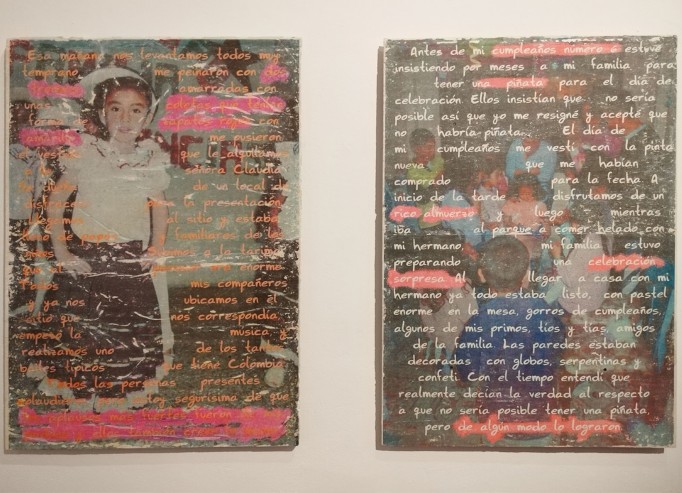 Esa mañana nos levantamos todos muy
temprano, me peinaron con dos
trenzas amarradas con
unas
forma de zapatos rojos con
amarillo me pusieron
el vestido que le alquilamos
a la señora Claudia,
la dueña de un local de
disfraces para la presentación.
al sitio y estaba
lleno de familiares de los
a la tarima
que era enorme.
Todos mis compañeros
y yo nos ubicamos en el
sitio que nos correspondía,
empezó la música, y
realizamos uno de los tantos
bailes típicos que tiene Colombia.
Todos las personas presentes
estoy segurísima de que
Antes de mi cumpleaños número 6 estuve
insistiendo por meses a mi familia para
tener una piñata para el día de
celebración Ellos insistían que no sería
posible así que yo me resigné y acepté que
no habría piñata. El día de
mi cumpleaños me vestí con la pinta
nueva que me habían
comprado para la fecha A
inicio de la tarde disfrutamos de un
rico almuerzo y luego mientras
iba al parque a comer helado con
mi hermano, mi familia estuvo
preparando una celebración
sorpresa Al llegar a casa con mi
hermano ya todo estaba listo, con pastel
enorme en la mesa, gorros de cumpleaños,
algunos de mis primos, tíos y tías, amigos
de la familia. Las paredes estaban
decoradas con globos, serpentinas y
confeti. Con el tiempo entendí que
realmente decían la verdad al respecto
a que no sería posible tener una piñata,
pero de algún modo lo lograron